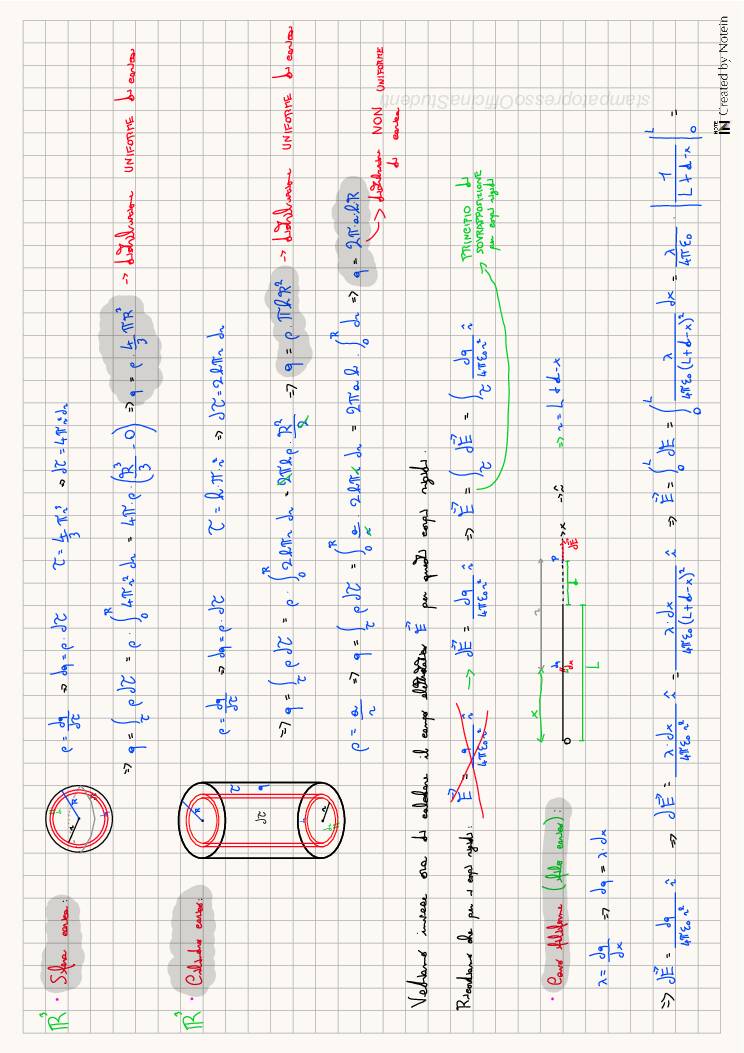 ℝ³ · Sfera carica:
ρ = dq/dτ => dq = ρ · dτ    τ = 4/3 πr³ => dτ = 4πr² dr
=> q = ∫_τ ρ dτ = ρ · ∫_0^R 4πr² dr = 4π · ρ · (R³/3 - 0) => q = ρ · 4/3 πR³ -> distribuzione UNIFORME di carica
ℝ³ · Cilindro carico:
ρ = dq/dτ => dq = ρ · dτ    τ = hπr² => dτ = 2hπr dr
=> q = ∫_τ ρ dτ = ρ · ∫_0^R 2hπr dr = 2πhρ · R²/2 => q = ρ · πhR² -> distribuzione UNIFORME di carica
ρ = a/r => q = ∫_τ ρ dτ = ∫_0^R a/r 2hπr dr = 2πah · ∫_0^R dr => q = 2πahR
-> distribuzione NON UNIFORME di carica
R
r
dr
τ
q
dτ
Vediamo invece ora di calcolare il campo elettrostatico E per questi corpi rigidi.
Ricordiamo che per i corpi rigidi: E = q/4πε₀r² r̂ -> dE = dq/4πε₀r² r̂ => E = ∫_τ dE = ∫_τ dq/4πε₀r² r̂
-> PRINCIPIO di SOVRAPPOSIZIONE per corpi rigidi
· Caso filiforme (filo carico):
O x dq dx L d r P dE x -> r̂ => r = L + d - x
λ = dq/dx => dq = λ · dx
=> dE = dq/4πε₀r² r̂ => dE = λ · dx/4πε₀r² r̂ = λ · dx/4πε₀(L+d-x)² r̂ => E = ∫_0^L dE = ∫_0^L λ/4πε₀(L+d-x)² dx = λ/4πε₀ · |1/L+d-x|_0^L =
stampatopressoOfficinaStudenti
NOTE IN Created by Notein